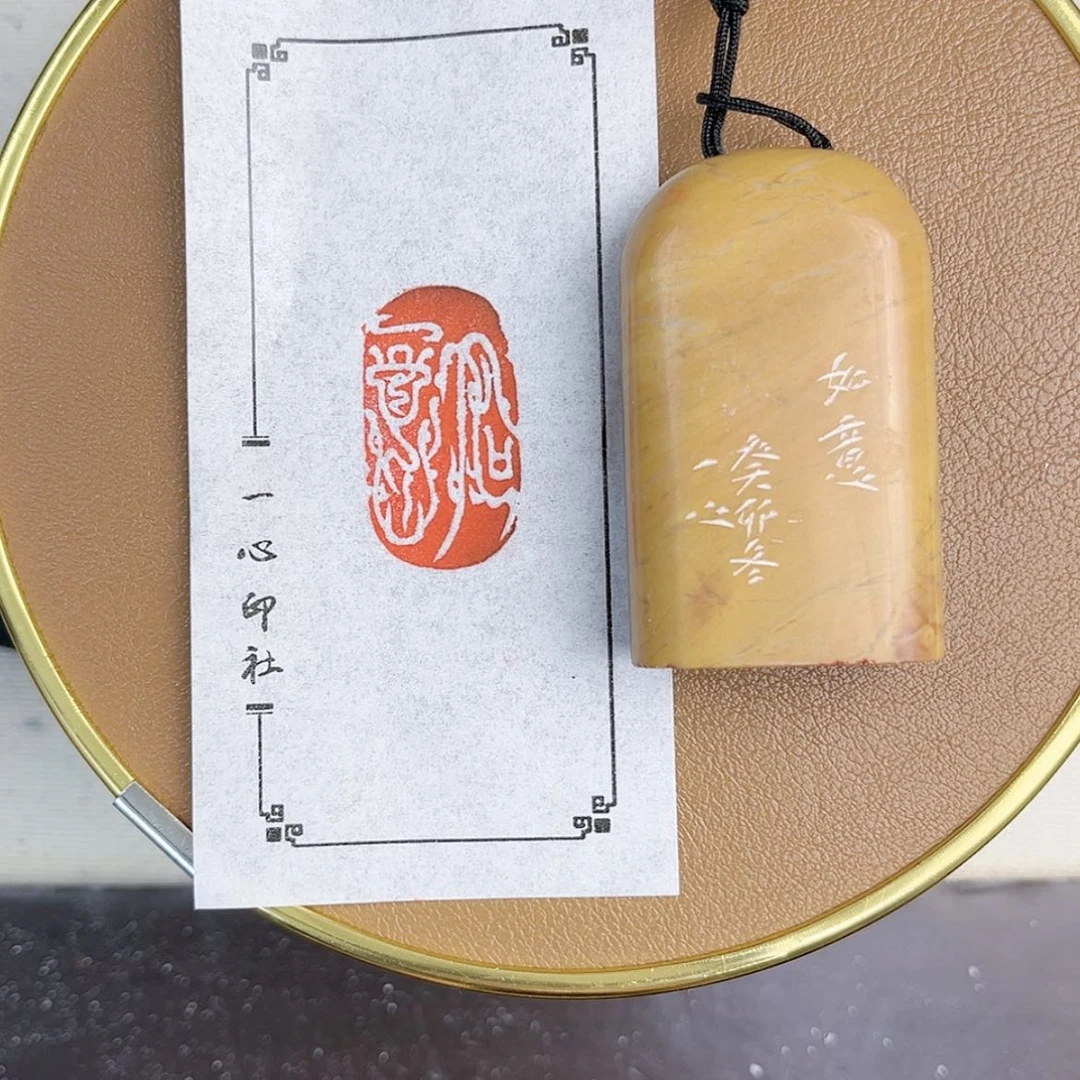 如意
一心印社
如意
癸卯冬
一心